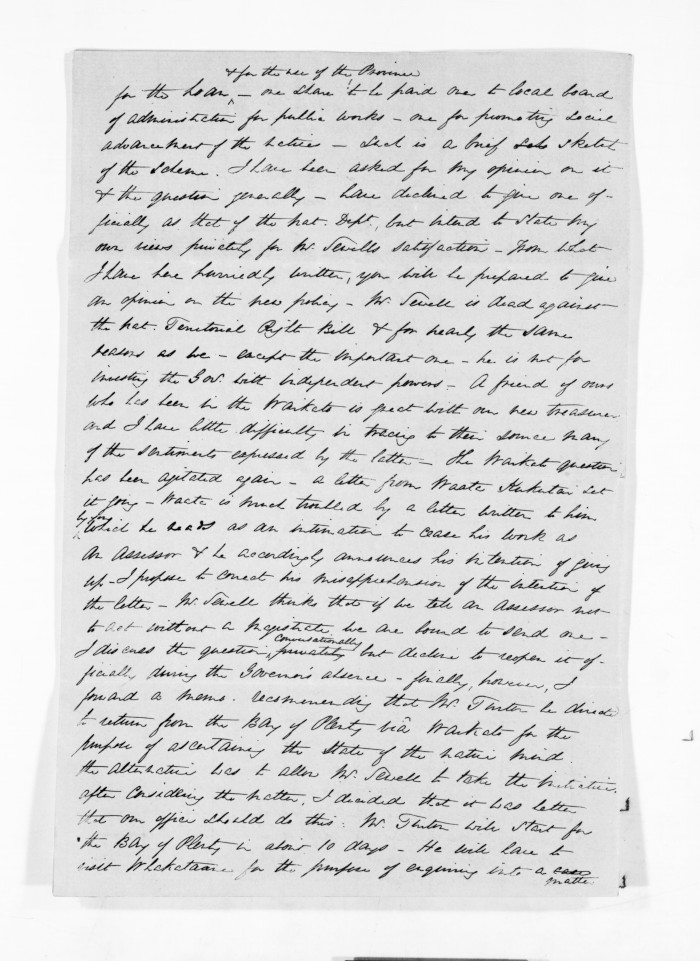 & for the use of the Province
for the Loan, – one share to be paid one to local board
of administration for public works – one for promoting social
advancement of the natives – Such is a brief sketch
of the scheme. I have been asked for my opinion on it
& the question generally – have declined to give one of-
ficially as that of the Nat. Dept., but intend to state my
own views privately for Mr. Sewell's satisfaction – From what
I have here hurriedly written, you will be prepared to give
an opinion on the new policy – Mr. Sewell is dead against
the Nat. Territorial Right Bill & for nearly the same
reasons as we – except the important one – he is not for
investing the Gov. with independent powers – A friend of ours
who has been in the Waikato is great with our new treasurer
and I have little difficulty in tracing to their source many
of the sentiments expressed by the latter – The Waikato question
has been agitated again – a letter from Waata Kukutai set
it going – Waata is much troubled by a letter written to him
which he reads as an intimation to cease his work as
an Assessor & he accordingly announces his intention of giving
up – I propose to correct his misapprehension of the intention of
the letter – Mr. Sewell thinks that if we tell an assessor not
to act without a Magistrate we are bound to send one –
conversationally
I discuss the question, privately but decline to reopen it of-
ficially during the Governor's absence – finally, however, I
forward a memo. recommending that Mr. Turton be directed
to return from the Bay of Plenty viâ Waikato for the
purpose of ascertaining the state of the native mind.
the alternative was to allow Mr. Sewell to take the initiative.
after considering the matter, I decided that it was better
that our office should do this. Mr. Turton will start for
the Bay of Plenty in about 10 days – He will have to
visit Whakatane for the purpose of enquiring into a case
matter